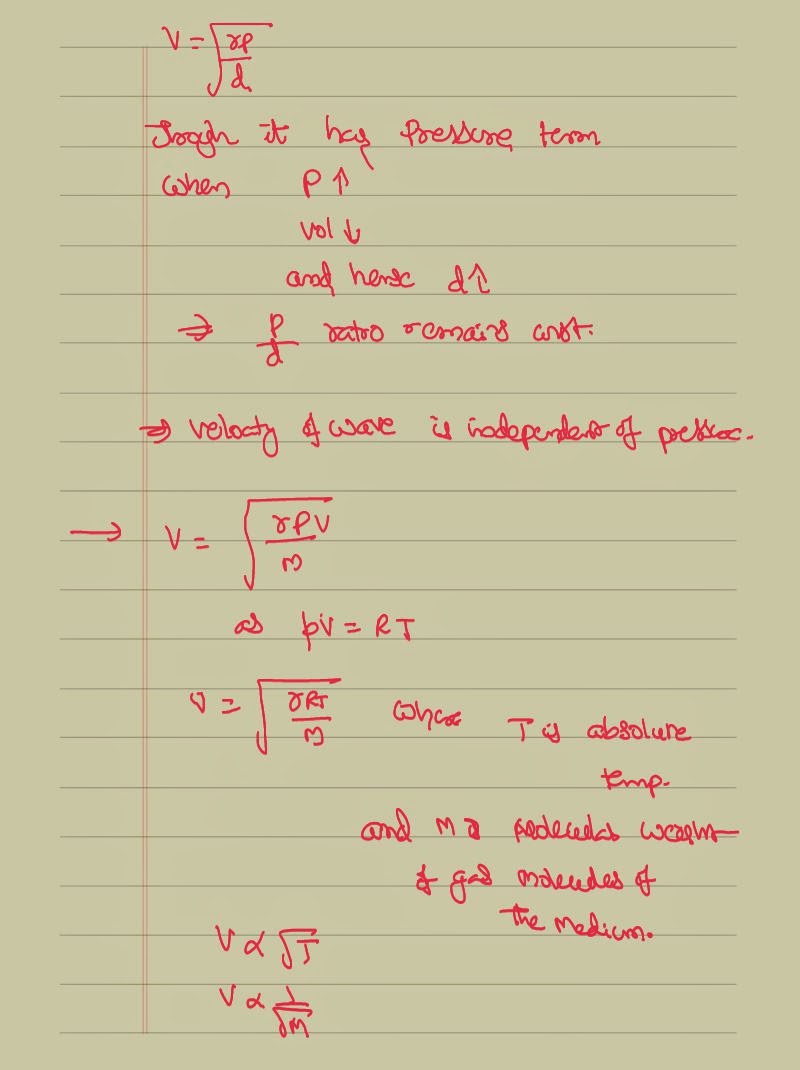 V = √(γP/d)
Though it has Pressure term
when P ↑
vol ↓
and hence d↑
⇒ P/d ratio remains const.
⇒ velocity of wave is independent of pressure.
→ V = √(γPV/M)
as PV = RT
V = √(γRT/M) where T is absolute
temp.
and M is molecular weight
of gas molecules of
the medium.
V ∝ √T
V ∝ 1/√M